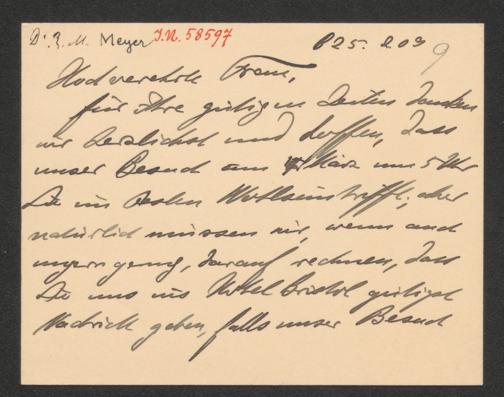 Dr. R. M. Meyer J.N. 58597
B 25. 2 09 9
Hochverehrte Frau,
für Ihre gütigen Zeilen danken
wir herzlichst und hoffen, dass
unser Besuch am März um 5 Uhr
Sie im besten Wohlsein trifft; aber
natürlich müssen wir, wenn auch
ungern genug, darauf rechnen, dass
Sie uns ins Hôtel Bristol gütigst
Nachricht geben, falls unser Besuch